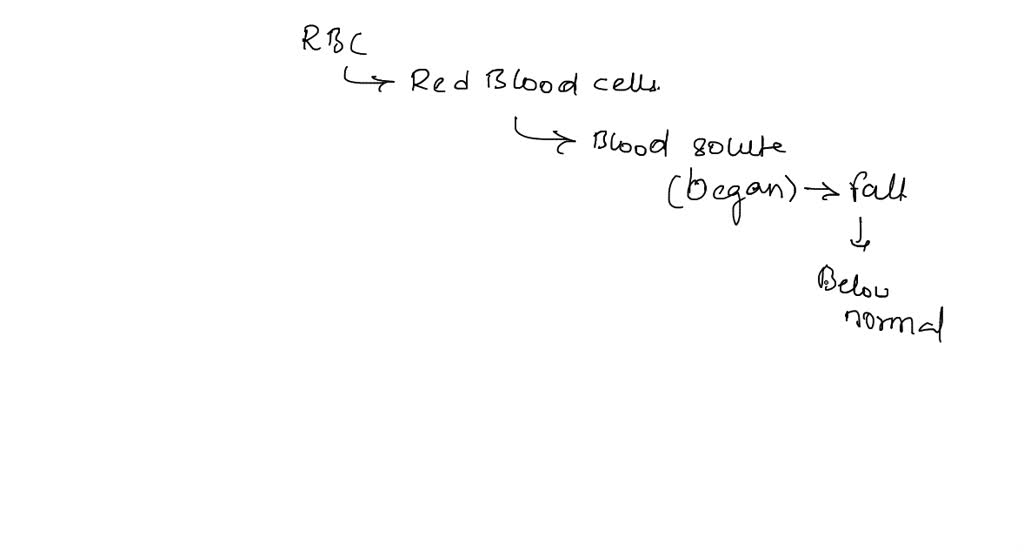 RBC
↳ Red Blood cells.
↳ Blood solute
(began) → fall
↓
Below
normal